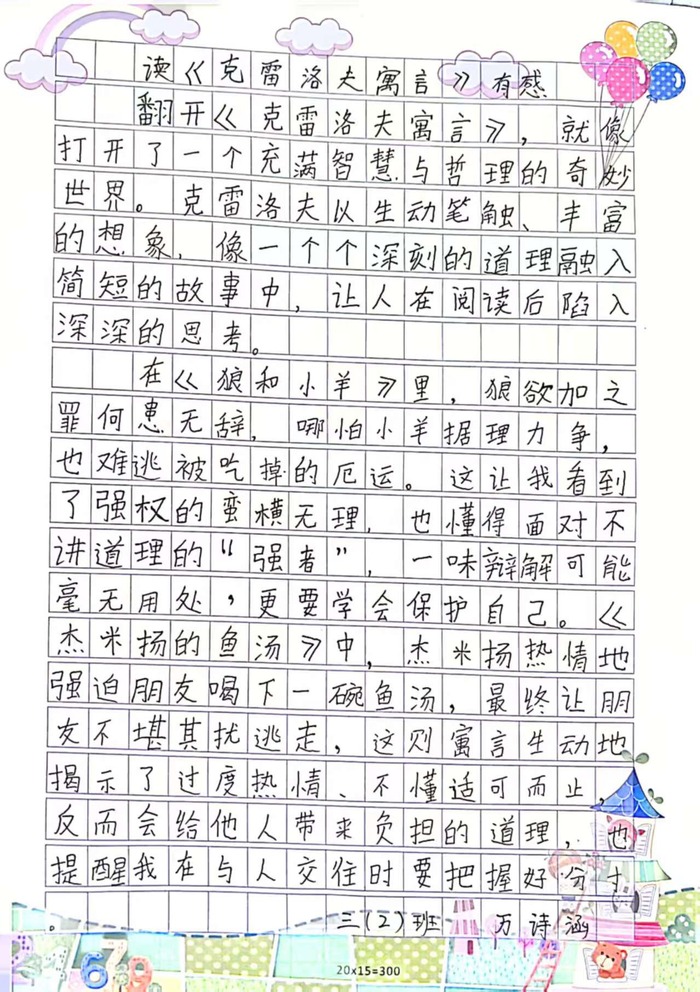 读《克雷洛夫寓言》有感
翻开《克雷洛夫寓言》，就像
打开了一个充满智慧与哲理的奇妙
世界。克雷洛夫以生动笔触、丰富
的想象，像一个个深刻的道理融入
简短的故事中，让人在阅读后陷入
深深的思考。
在《狼和小羊》里，狼欲加之
罪何患无辞，哪怕小羊据理力争，
也难逃被吃掉的厄运。这让我看到
了强权的蛮横无理，也懂得面对不
讲道理的“强者”，一味辩解可能
毫无用处，更要学会保护自己。《
杰米扬的鱼汤》中，杰米扬热情地
强迫朋友喝下一碗鱼汤，最终让朋
友不堪其扰逃走，这则寓言生动地
揭示了过度热情、不懂适可而止，
反而会给他人带来负担的道理，也
提醒我在与人交住时要把握好分寸
。 三（2）班 万诗涵
20x15=300